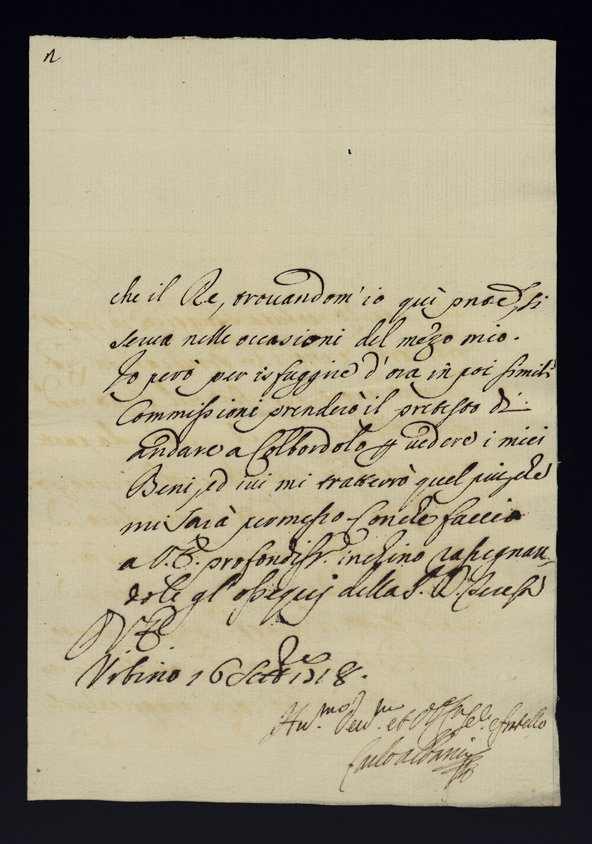 che il Re, trovandom' io quì pnte, si
serva nelle occasioni del mezzo mio.
Io però per isfuggire d'ora in poi simili
Commissioni prenderò il pretesto di
andare a Colbordolo vedere i miei
Beni, ed ivi mi tratterrò quel più che
mi sarà permesso. Con che faccio
a V.E. profondiss. inchino rasegnan-
dole gl' ossequij della S. D. Teresa
Urbino 16 1718.
Hu.mo Dev.mo et fratello
Carlo Albani